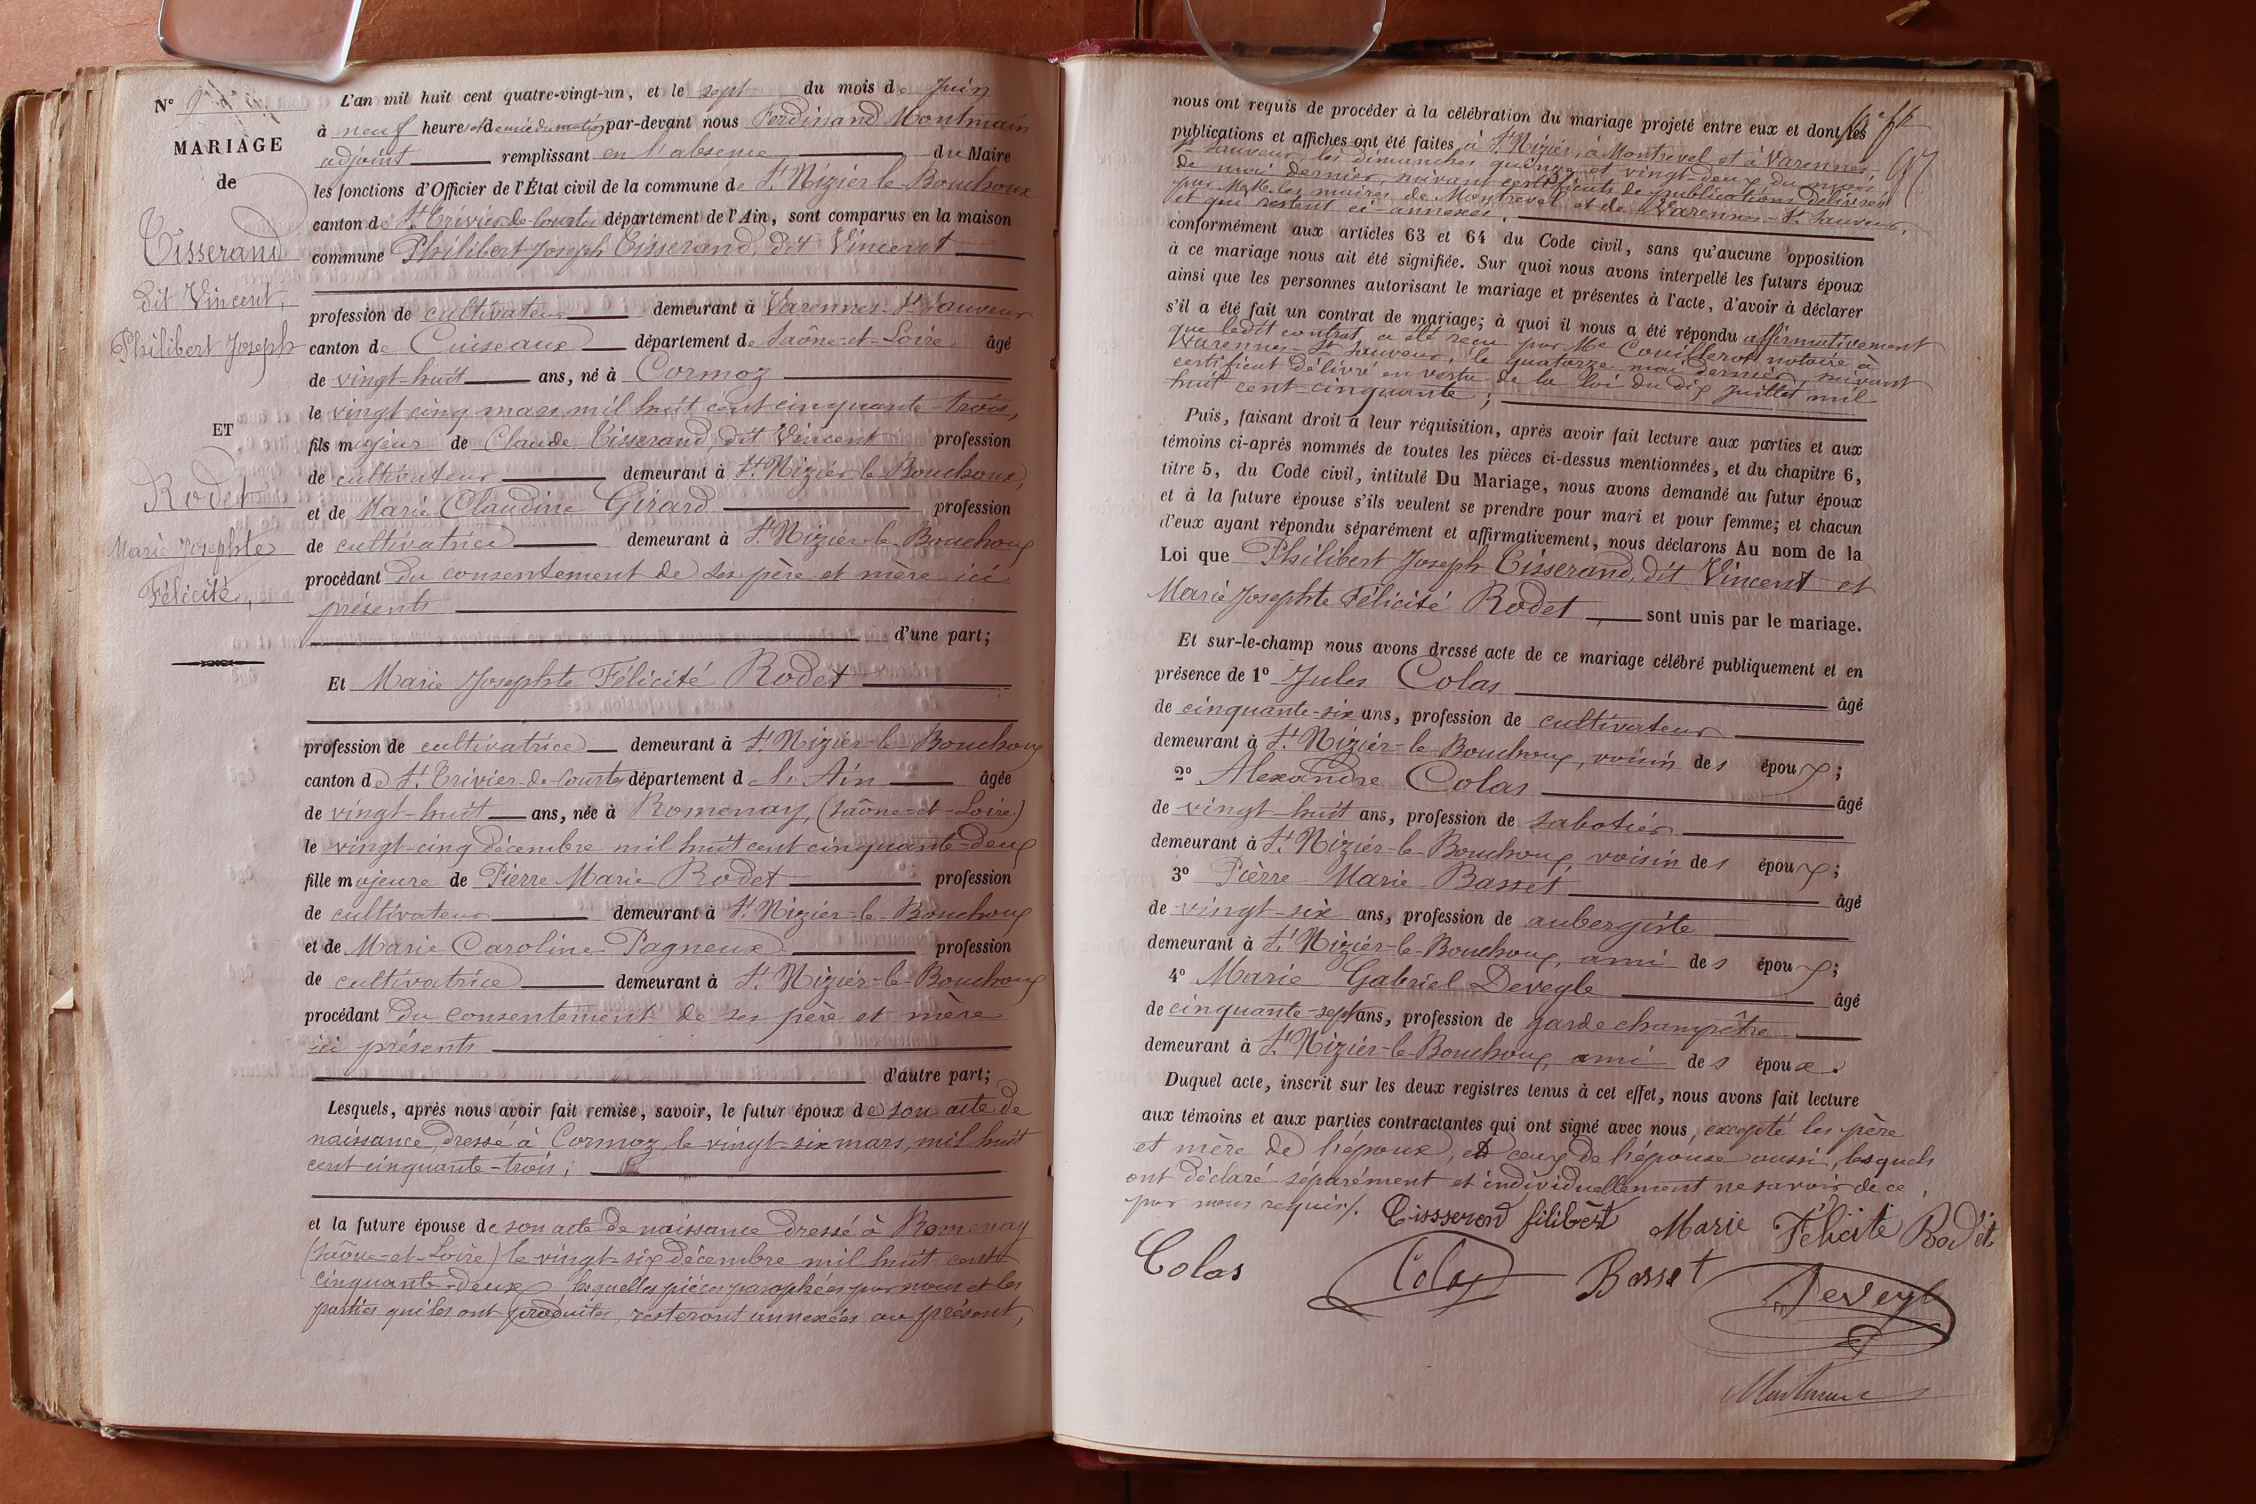 N° 9
MARIAGE
de
Tisserand
dit Vincent,
Philibert Joseph
ET
Rodet
Marie Josephte
Félicité,
L'an mil huit cent quatre-vingt-un, et le sept du mois de Juin
à neuf heures et demie du matin par-devant nous Ferdinand Montmain
adjoint remplissant en l'absence du Maire
les fonctions d'Officier de l'État civil de la commune de St Nizier-le-Bouchoux
canton de St Trivier-de-Courtes département de l'Ain, sont comparus en la maison
commune Philibert Joseph Tisserand, dit Vincent
profession de cultivateur demeurant à Varennes-St Sauveur
canton de Cuiseaux département de Saône-et-Loire âgé
de vingt-huit ans, né à Cormoz
le vingt cinq mars mil huit cent cinquante-trois,
fils majeur de Claude Tisserand dit Vincent profession
de cultivateur demeurant à St Nizier-le-Bouchoux,
et de Marie Claudine Girard profession
de cultivatrice demeurant à St Nizier-le-Bouchoux
procédant du consentement de ses père et mère ici
présents
d'une part;
Et Marie Josephte Félicité Rodet
profession de cultivatrice demeurant à St Nizier-le-Bouchoux
canton de St Trivier-de-Courtes département de l'Ain âgée
de vingt-huit ans, née à Romenay, (Saône-et-Loire)
le vingt-cinq décembre mil huit cent cinquante-deux
fille majeure de Pierre Marie Rodet profession
de cultivateur demeurant à St Nizier-le-Bouchoux
et de Marie Caroline Pagneux profession
de cultivatrice demeurant à St Nizier-le-Bouchoux
procédant du consentement de ses père et mère
ici présents
d'autre part;
Lesquels, après nous avoir fait remise, savoir, le futur époux de son acte de
naissance, dressé à Cormoz le vingt-six mars, mil huit
cent cinquante-trois;
et la future épouse de son acte de naissance dressé à Romenay
(Saône-et-Loire) le vingt-six décembre mil huit cent
cinquante-deux, lesquelles pièces paraphées par nous et les
parties qui les ont produites, resteront annexées au présent,
nous ont requis de procéder à la célébration du mariage projeté entre eux et dont les
publications et affiches ont été faites à St Nizier, à Montrevel et à Varennes,
St Sauveur, les dimanches quinze et vingt-deux du mois
de mai dernier, suivant certificats de publications délivrés
par M.M. les maires de Montrevel et de Varennes-St Sauveur,
et qui restent ci-annexés,
conformément aux articles 63 et 64 du Code civil, sans qu'aucune opposition
à ce mariage nous ait été signifiée. Sur quoi nous avons interpellé les futurs époux
ainsi que les personnes autorisant le mariage et présentes à l'acte, d'avoir à déclarer
s'il a été fait un contrat de mariage; à quoi il nous a été répondu affirmativement
que ledit contrat a été reçu par Me Couillerot notaire à
Varennes-St Sauveur, le quatorze mai dernier, suivant
certificat délivré en vertu de la loi du dix Juillet mil
huit cent cinquante;
Puis, faisant droit à leur réquisition, après avoir fait lecture aux parties et aux
témoins ci-après nommés de toutes les pièces ci-dessus mentionnées, et du chapitre 6,
titre 5, du Code civil, intitulé Du Mariage, nous avons demandé au futur époux
et à la future épouse s'ils veulent se prendre pour mari et pour femme; et chacun
d'eux ayant répondu séparément et affirmativement, nous déclarons Au nom de la
Loi que Philibert Joseph Tisserand, dit Vincent et
Marie Josephte Félicité Rodet, sont unis par le mariage.
Et sur-le-champ nous avons dressé acte de ce mariage célébré publiquement et en
présence de 1° Jules Colas âgé
de cinquante-six ans, profession de cultivateur
demeurant à St Nizier-le-Bouchoux, voisin des époux;
2° Alexandre Colas âgé
de vingt-huit ans, profession de sabotier
demeurant à St Nizier-le-Bouchoux, voisin des époux;
3° Pierre Marie Basset âgé
de vingt-six ans, profession de aubergiste
demeurant à St Nizier-le-Bouchoux, ami des époux;
4° Marie Gabriel Deveyle âgé
de cinquante-sept ans, profession de garde champêtre
demeurant à St Nizier-le-Bouchoux, ami des époux.
Duquel acte, inscrit sur les deux registres tenus à cet effet, nous avons fait lecture
aux témoins et aux parties contractantes qui ont signé avec nous, excepté les père
et mère de l'époux, et ceux de l'épouse aussi, lesquels
ont déclaré séparément et individuellement ne savoir de ce
par nous requis/.
Tissserand filibert Marie Félicité Rodet
Colas Colas Basset Deveyle
Montmain